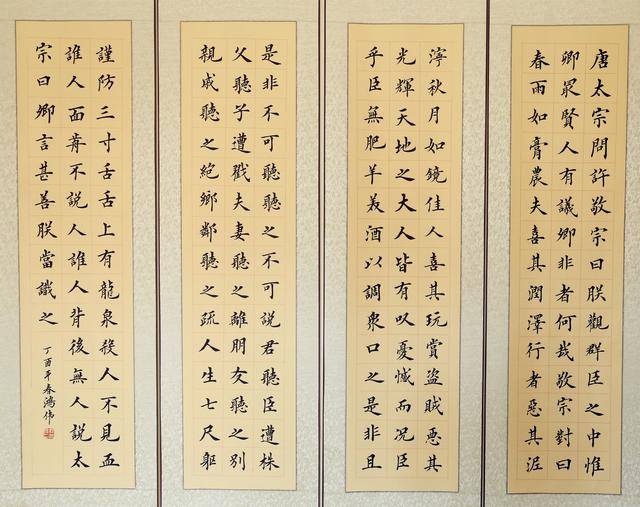 唐太宗問許敬宗曰朕觀群臣之中惟
卿最賢人有議卿非者何哉敬宗對曰
春雨如膏農夫喜其潤澤行者惡其泥
濘秋月如鏡佳人喜其玩賞盜賊惡其
光輝天地之大人皆有㕥憂憾而況臣
乎臣無肥羊美酒以調衆口之是非且
是非不可聽聽之不可說君聽臣遭株
父聽子遭戮夫妻聽之離朋友聽之別
親戚聽之絕鄉鄰聽之疏人生七尺軀
謹防三寸舌舌上有龍泉殺人不見血
誰人面前不說人誰人背後無人說太
宗曰卿言甚善朕當識之
丁酉年春鴻偉